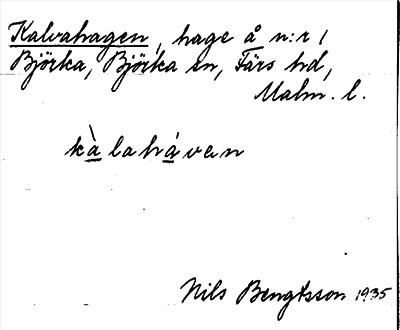 Kalvahagen, hage å n:r 1
Björka, Björka sn, Färs hd,
Malm. l.
kàlahávan
Nils Bengtsson 1935